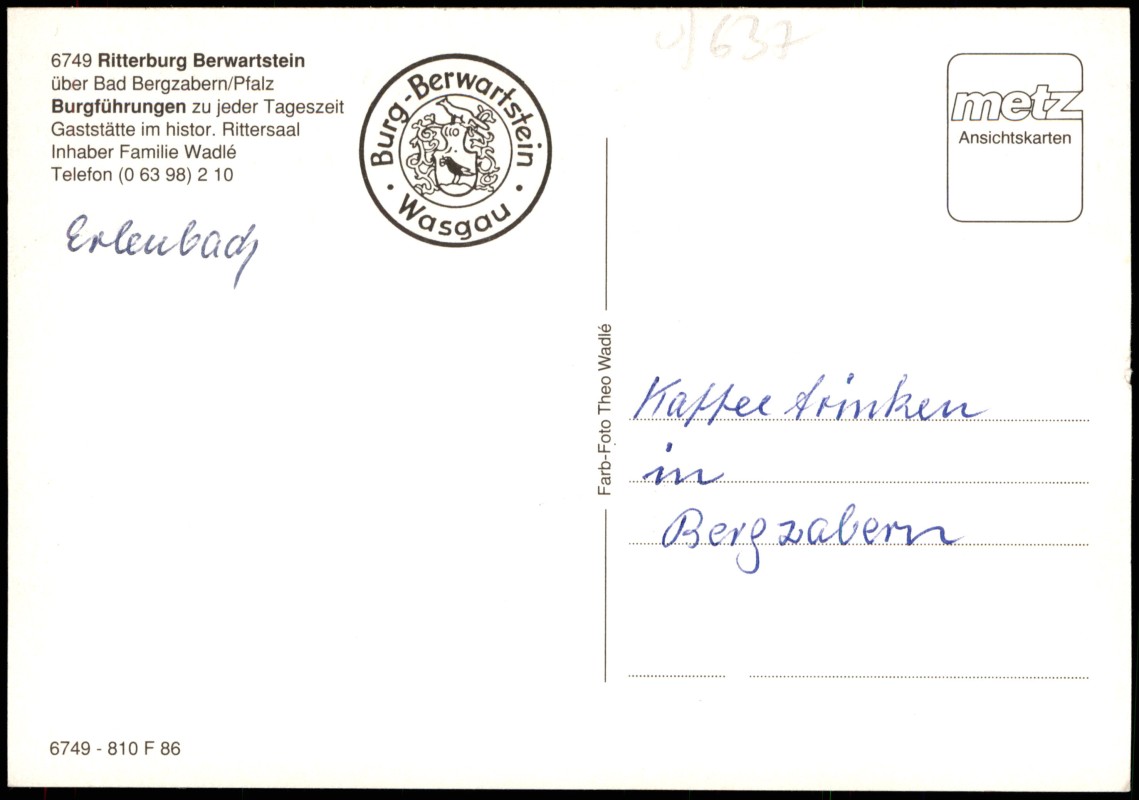 6749 Ritterburg Berwartstein
über Bad Bergzabern/Pfalz
Burgführungen zu jeder Tageszeit
Gaststätte im histor. Rittersaal
Inhaber Familie Wadlé
Telefon (0 63 98) 2 10
Burg-Berwartstein
· Wasgau ·
Erlenbach
637
metz
Ansichtskarten
Farb-Foto Theo Wadlé
Kaffee trinken
in
Bergzabern
6749 - 810 F 86